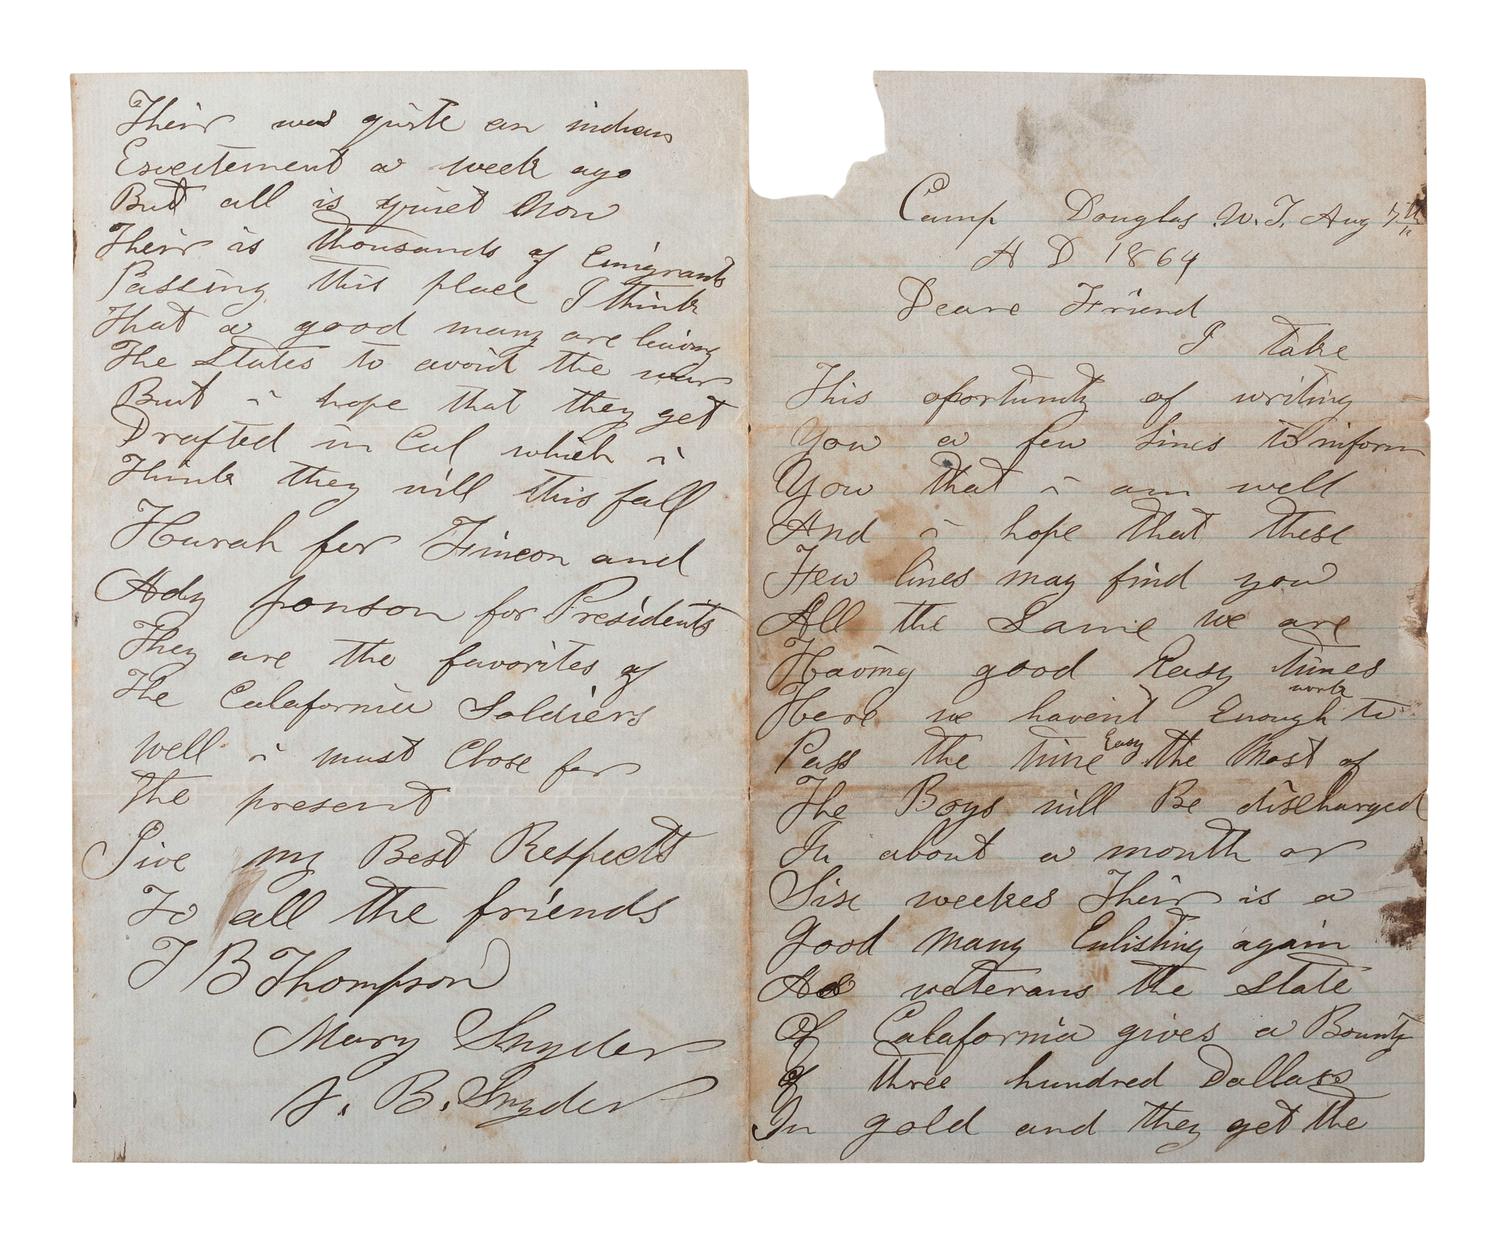 Camp Douglas U.T. Aug 7th
A D 1864
Deare Friend
I take
This oportunity of writing
You a few lines to inform
You that i am well
And i hope that these
Few lines may find you
All the Same we are
Having good Easy times
Here we havent Enough work to
Pass the time Easy the Most of
The Boys will Be discharged
In about a month or
Six weekes Their is a
Good Many Enlisting again
As veterans the State
Of Calafornia gives a Bounty
of three hundred Dollars
In gold and they get the
Their was quite an indian
Exceitement a week ago
But all is quiet Now
Their is thousands of Emigrants
Passing this place I think
That a good many are leiving
The States to avoid the war
But i hope that they get
Drafted in Cal which i
Think they will this fall
Hurah for and
Ady Jonson for Presidents
They are the favorites of
The Calafornia Soldiers
Well i must Close for
the present
Give my Best Respects
To all the friends
T B Thompson
Mary Snyder
J. B. Snyder